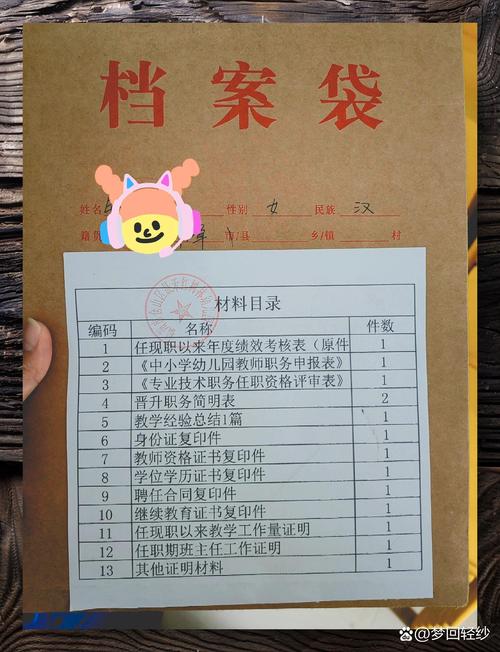 档案袋
姓名 性别 女 民族 汉
籍贯 市/县 乡/镇 村
材料目录
编码 名称 件数
1 任现职以来年度绩效考核表（原件 1
2 《中小学幼儿园教师职务申报表》 1
3 《专业技术职务任职资格评审表》 1
4 晋升职务简明表 2
5 教学经验总结1篇 1
6 身份证复印件 1
7 教师资格证书复印件 1
8 学位学历证书复印件 1
9 聘任合同复印件 1
10 继续教育证书复印件 1
11 任现职以来教学工作量证明 1
12 任职期班主任工作证明 1
13 其他证明材料 1
百家号@梦回轻纱